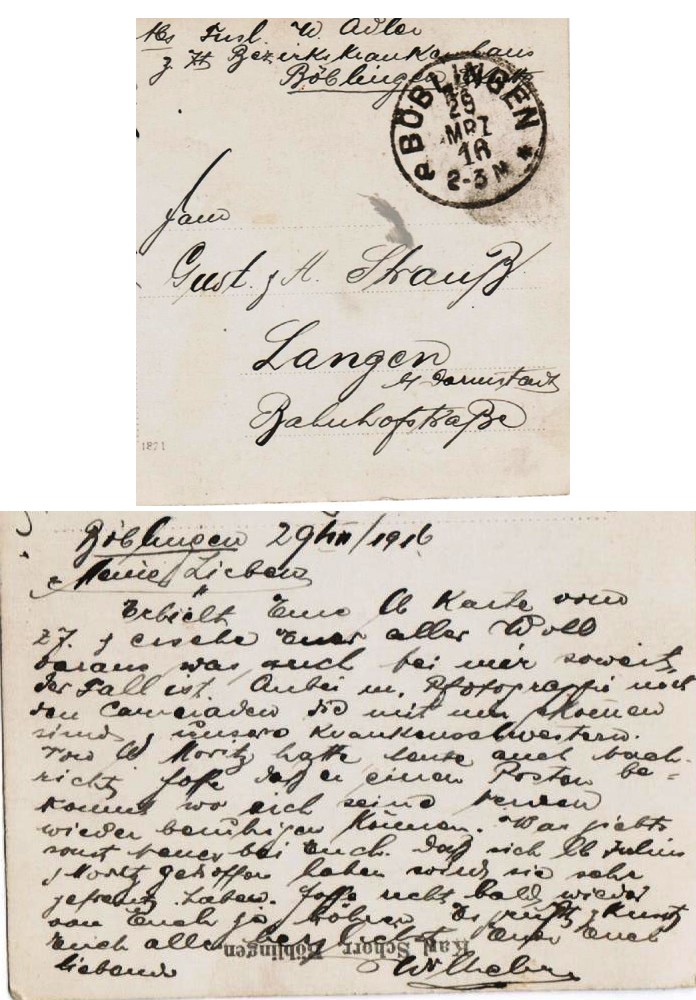 Abs Fusl. W. Adler
z Zt Bezirkskrankenhaus
Böblingen
BÖBLINGEN
29
MRZ
16
2-3 N
Gust. z H. Strauß
Langen
b/ Darmstadt
Bahnhofstraße
1871
Böblingen 29/III/1916
Meine Lieben
Erhielt Eure lb Karte vom
27. z ersehe Euer aller Woll
daraus was auch bei mir soweit
der Fall ist. Anbei m. Pfotograpfie nebst
den Cameraden die mit mir
sind, unsere Krankenschwestern.
von lb Moritz hatte heute auch Nach-
richt hoffe daß er einen Posten be-
kommt wo sich seine Nerven
wieder beruhigen können. Was giebts
sonst neues bei Euch. Daß sich lb Julius
z Moritz getroffen haben wird sie sehr
gefreut haben. Hoffe recht bald wieder
von Euch zu höhren Es grüßt z küsst
Euch alle herzlichst Euer Euch
liebender
Wilhelm
Karl Schorr, Böblingen